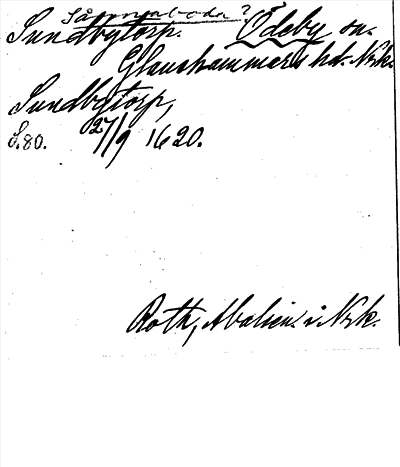 Sångarboda?
Sundbytorp. Ödeby sn.
Glanshammars hd. Nrk.
Sundbytorp,
S. 80. 27/9 1620.
Roth, Abalien. i Nrk.